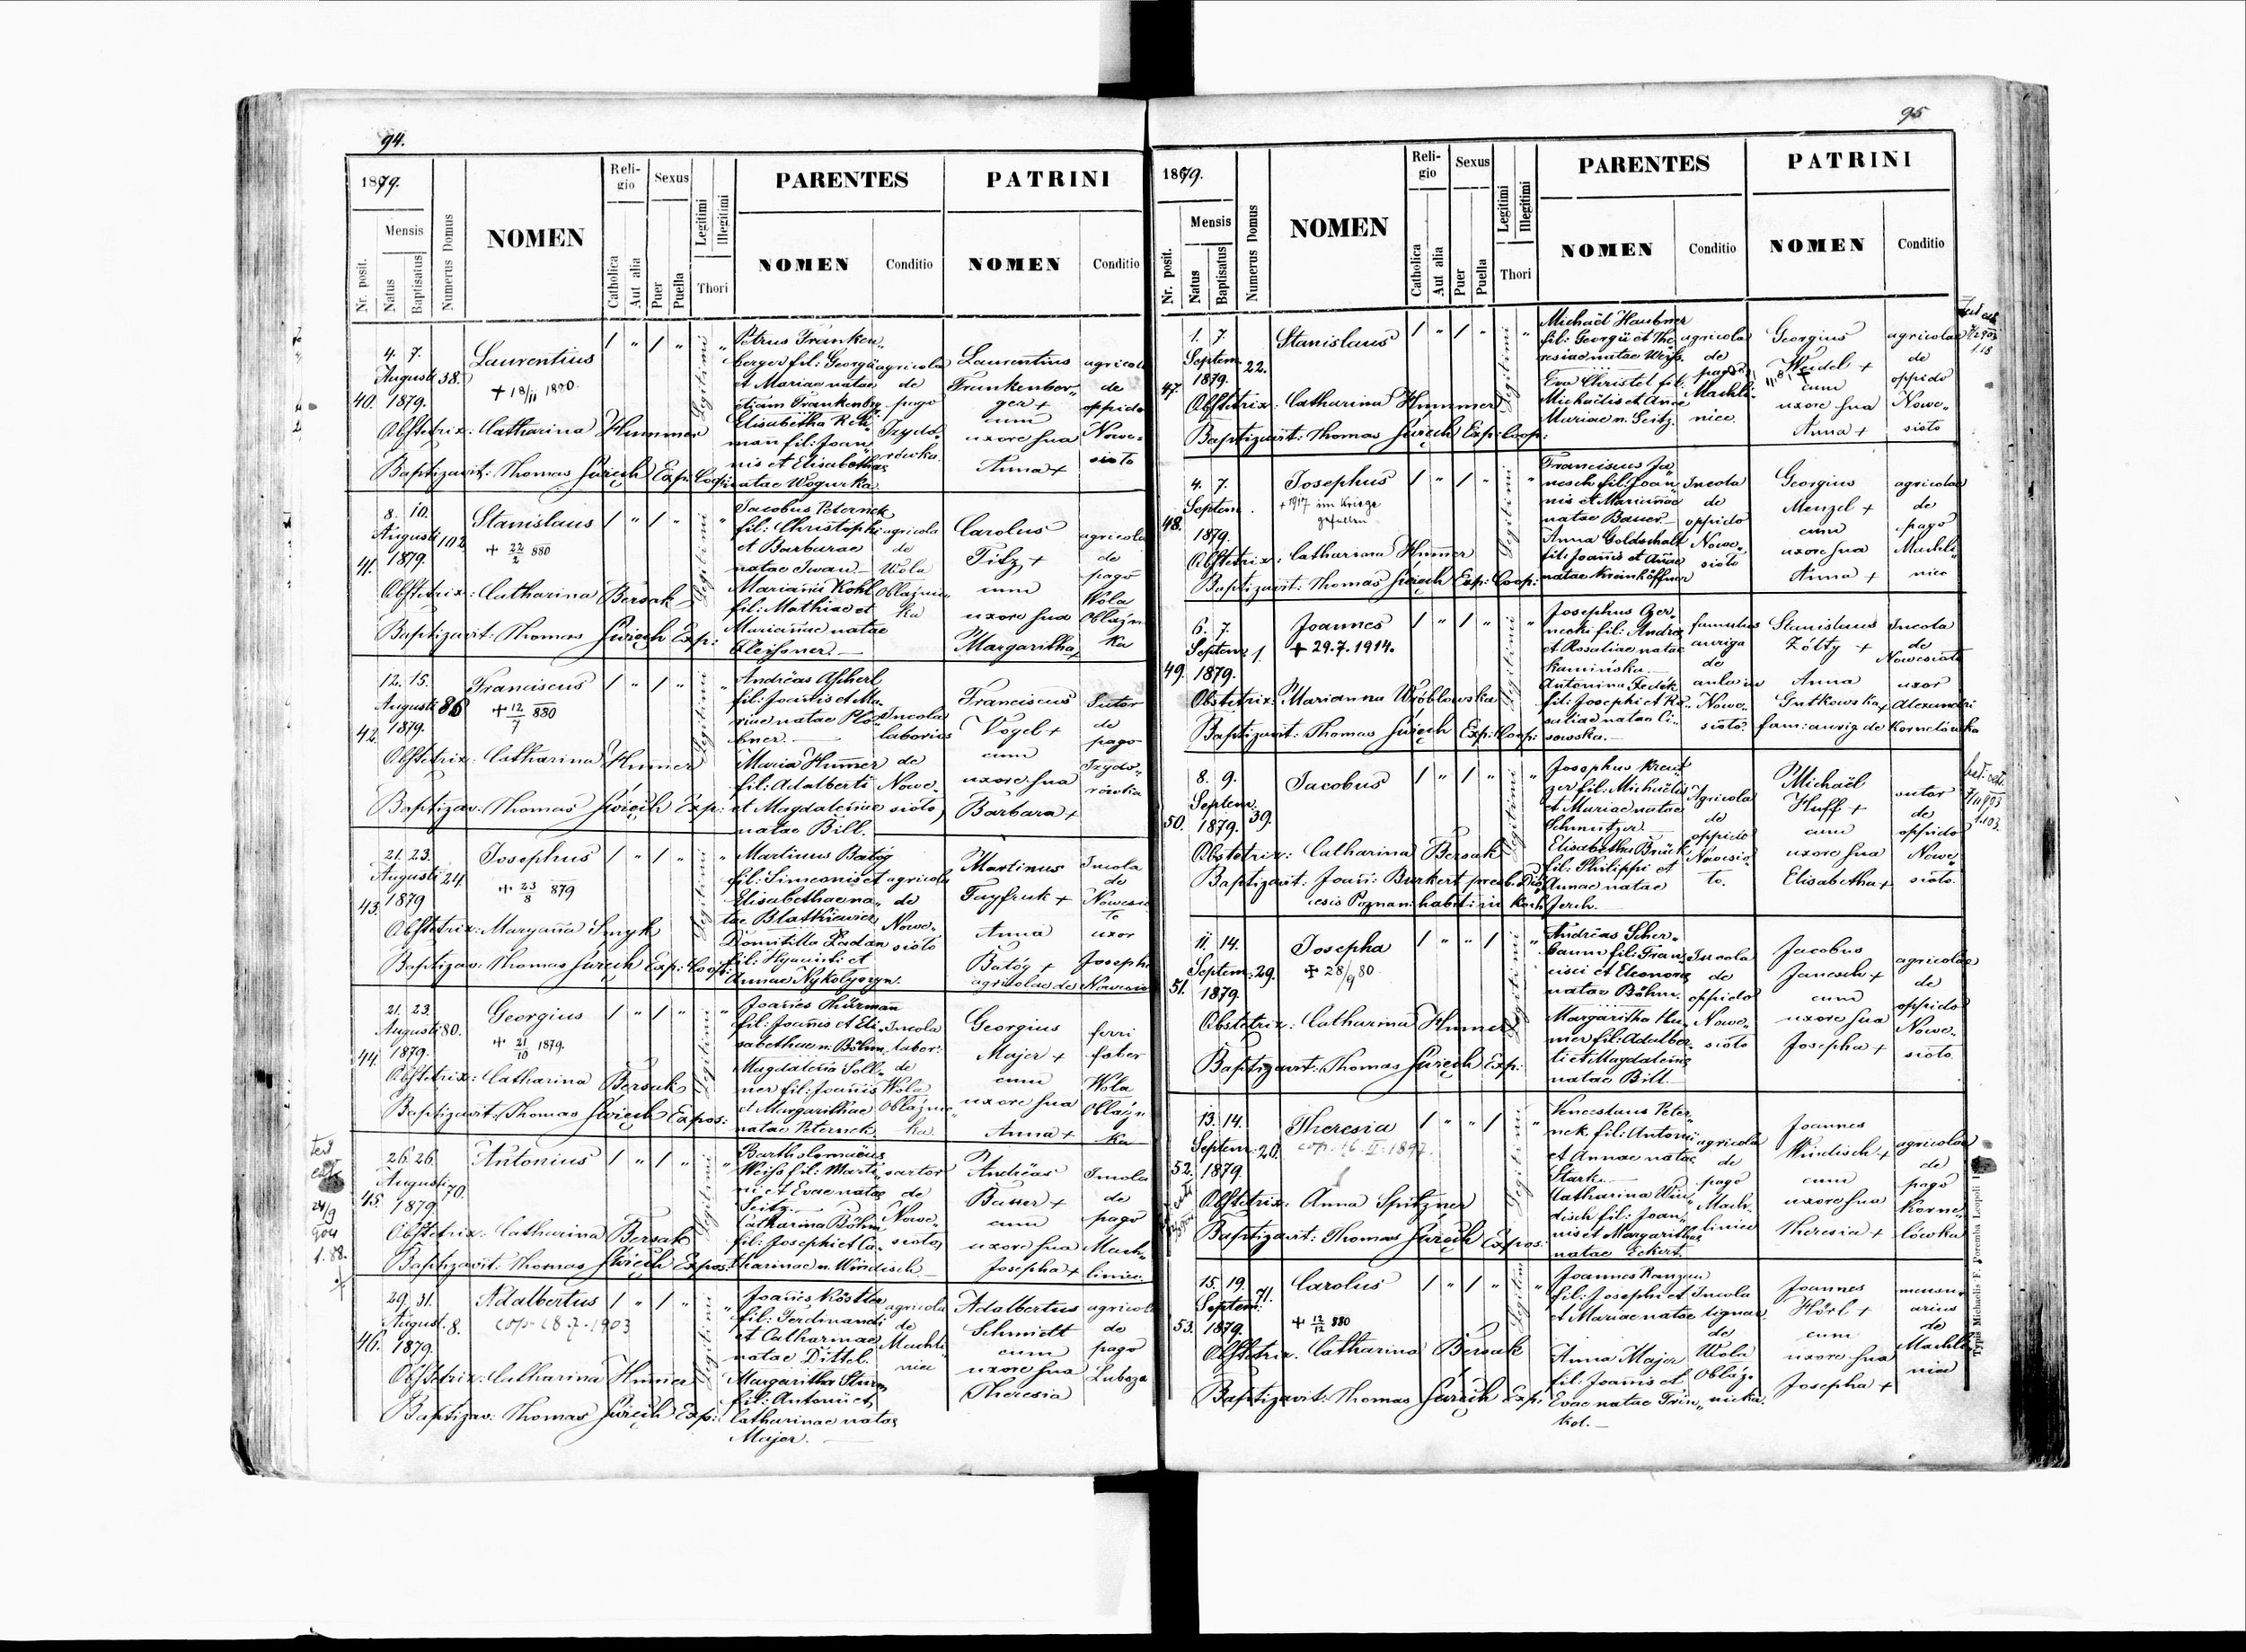 94.
1879.
Mensis
Nr. posit.
Natus
Baptisatus
Numerus Domus
NOMEN
Religio
Catholica
Aut alia
Sexus
Puer
Puella
Legitimi
Illegitimi
Thori
PARENTES
NOMEN
Conditio
PATRINI
NOMEN
Conditio
40.
4. 7.
Augusti
1879.
38.
Laurentius
+ 18/11 1880.
Obstetrix: Catharina Hummer
Baptizavit: Thomas Swięch Exp: Coop:
Legitimi
Petrus Franken„
berger fil: Georgii
et Mariae natae
etiam Frankenbg.
Elisabetha
man fil: Joan„
nis et Elisabethae
natae Wogurka.
agricola
de
pago
Izydo„
rówka.
Laurentius
Frankenber„
ger +
cum
uxore sua
Anna +
agricola
de
oppido
Nowe„
sioto
41.
8. 10.
Augusti
1879.
102
Stanislaus
+ 22/2 880
Obstetrix: Catharina Bersak
Baptizavit: Thomas Swięch Exp:
Legitimi
Jacobus Peternek
fil: Christophi
et Barbarae
natae Iwan.—
Marianna Kohl
fil: Mathiae et
Mariannae natae
Fleissner.—
agricola
de
Wola
Oblaźnic„
ka
Carolus
Tilz +
cum
uxore sua
Margaritha +
agricola
de
pago
Wola
Oblaźn
ka
42.
12. 15.
Augusti
1879.
86
Franciscus
+ 12/7 880
Obstetrix: Catharina Hummer
Baptizav: Thomas Swięch Exp:
Legitimi
Andreas Ascherl
fil: Joannis et Ma„
riae natae Plö„
bner.—
Maria Hummer
fil: Adalberti
et Magdalenae
natae Bill.
Incola
laborios
de
Nowe„
sioto
Franciscus
Vogel +
cum
uxore sua
Barbara +
Sutor
de
pago
Izydo„
rówka
43.
21. 23.
Augusti
1879
24.
Josephus
+ 23/8 879
Obstetrix: Maryanna Smyk
Baptizav: Thomas Swięch Exp: Coop:
Legitimi
Martinus Batóg
fil: Simeonis et
Elisabethae na„
tae Blatkiewicz
Domitilla Ladan
fil: Hyacinti et
Annae Nykołyszyn.
agricola
de
Nowe„
sioto
Martinus
Fayfruk +
Anna
Batóg +
agricolae de Nowesio
Incola
de
Nowesio
to
uxor
Josephi
44.
21. 23.
Augusti
1879.
80.
Georgius
+ 21/10 1879.
Obstetrix: Catharina Bersak
Baptizavit: Thomas Swięch Expos:
Legitimi
Joannes Thürmann
fil: Joannis et Eli„
sabethae n: Böhm.
Magdalena Soll„
ner fil: Joannis
et Margarithae
natae Peternek.
Incola
labor:
de
Wola
Oblaźnic„
ka.
Georgius
Majer +
cum
uxore sua
Anna +
ferri
faber
Wola
Oblaźn
ka
45.
26. 26.
Augusti
1879.
70.
Antonius
Obstetrix: Catharina Bersak
Baptizavit: Thomas Swięch Expos:
Legitimi
Bartholomaeus
Weiss fil: Marti„
ni et Evae natae
Seitz.—
Catharina Böhm
fil: Josephi et Ca„
tharinae n. Windisch.—
sartor
de
Nowe„
sioto
Andreas
Bauer +
cum
uxore sua
Josepha +
Incola
de
pago
Mach„
liniec.
24/9
904
l. 88.
46.
29. 31.
August.
1879.
8.
Adalbertus
cop. 18.7.1903
Obstetrix: Catharina Hummer
Baptizav: Thomas Swięch Exp:
Legitimi
Joannes Köstler
fil: Ferdinandi
et Catharinae
natae Dittel.
Margaritha Sturm
fil: Antonii et
Catharinae natae
Majer.—
agricola
de
Machli„
niec
Adalbertus
Schmidt
cum
uxore sua
Theresia
agricola
de
pago
Lubsza
95
1879.
Mensis
Nr. posit.
Natus
Baptisatus
Numerus Domus
NOMEN
Religio
Catholica
Aut alia
Sexus
Puer
Puella
Legitimi
Illegitimi
Thori
PARENTES
NOMEN
Conditio
PATRINI
NOMEN
Conditio
47.
1. 7.
Septem.
1879.
22.
Stanislaus
Obstetrix: Catharina Hummer
Baptizavit: Thomas Swięch Exp: Coop:
Legitimi
Michaël Haubner
fil: Georgii et The„
resiae natae Weiss.
Eva Christel fil:
Michaëlis et Annae
Mariae n. Seitz.
agricola
de
pago
Machli„
niec.
Georgius
Weidel +
cum
uxore sua
Anna +
agricolae
de
oppido
Nowe„
sioto
48.
4. 7.
Septem.
1879.
Josephus
+ 1917 im Kriege
gefallen
Obstetrix: Catharina Hummer
Baptizavit: Thomas Swięch Exp: Coop:
Legitimi
Franciscus Ja„
nesch fil: Joan„
nis et Mariannae
natae Bauer.—
Anna Goldschalt
fil: Joannis et Annae
natae Kreinhöffner
Incola
de
oppido
Nowe„
sioto
Georgius
Menzel +
cum
uxore sua
Anna +
agricolae
de
pago
Machli„
niec
49.
6. 7.
Septem.
1879.
1.
Joannes
+ 29.7.1914.
Obstetrix: Marianna Wróblowska
Baptizavit: Thomas Swięch Exp: Coop:
Legitimi
Josephus Czer„
necki fil: Andrea
et Rosaliae natae
Kamińska.—
Antonina Fedék
fil: Josephi et Ro„
saliae natae Ci„
sowska.—
famulus
auriga
de
aula in
Nowe„
sioto.
Stanislaus
Żółty +
Anna
Gutkowska +
fam: aurig. de Kornelówka
Incola
de
Nowesioto
uxor
Alexandri
50.
8. 9.
Septem.
1879.
39.
Jacobus
Obstetrix: Catharina Bersak
Baptizavit: Joan: Burkert presb. Dioe
cesis Poznan: habit: in Koch
Legitimi
Josephus Kreut„
zer fil: Michaëlis
et Mariae natae
Schmutzer.—
Elisabetha Brück
fil: Philippi et
Annae natae
Jerch.—
Agricola
de
oppido
Nowesio„
to.
Michaël
Huff +
cum
uxore sua
Elisabetha +
sutor
de
oppido
Nowe„
sioto.
51.
11. 14.
Septem.
1879.
29.
Josepha
+ 28/9 80.
Obstetrix: Catharina Hummer
Baptizavit: Thomas Swięch Exp:
Legitimi
Andreas Scher„
baum fil: Fran„
cisci et Eleonora
natae Böhm.
Margaritha Hu„
mer fil: Adalber„
ti et Magdalenae
natae Bill.—
Incola
de
oppido
Nowe„
sioto
Jacobus
Janesch +
cum
uxore sua
Josepha +
agricolae
de
oppido
Nowe„
sioto.
52.
13. 14.
Septem.
1879.
20.
Theresia
cop. 16. II. 1897.
Obstetrix: Anna Spitzner
Baptizavit: Thomas Swięch Expos:
Legitimi
Venceslaus Peter„
nek fil: Antonii
et Annae natae
Stark.—
Catharina Win„
disch fil: Joan„
nis et Margarithae
natae Eckert.
agricola
de
pago
Mach„
liniec
Joannes
Windisch +
cum
uxore sua
Theresia +
agricolae
de
pago
Korne„
lówka
53.
15. 19.
Septem.
1879.
71.
Carolus
+ 12/12 880
Obstetrix: Catharina Bersak
Baptizavit: Thomas Swięch Exp:
Legitimi
Joannes
fil: Josephi et
et Mariae natae
Anna Majer
fil: Joannis et
Evae natae Trin„
kol.—
Incola
lignar.
de
Wola
Obláź„
nicka.
Joannes
Hörl +
cum
uxore sua
Josepha +
mensu„
arius
de
Machli„
niec
Typis Michaelis F. Poremba Leopoli